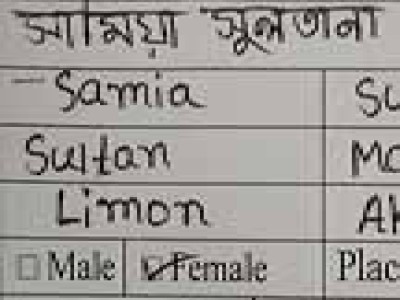 সামিয়া সুলতানা
Samia Su
Sultan Mo
Limon Ak
Male Female Plac